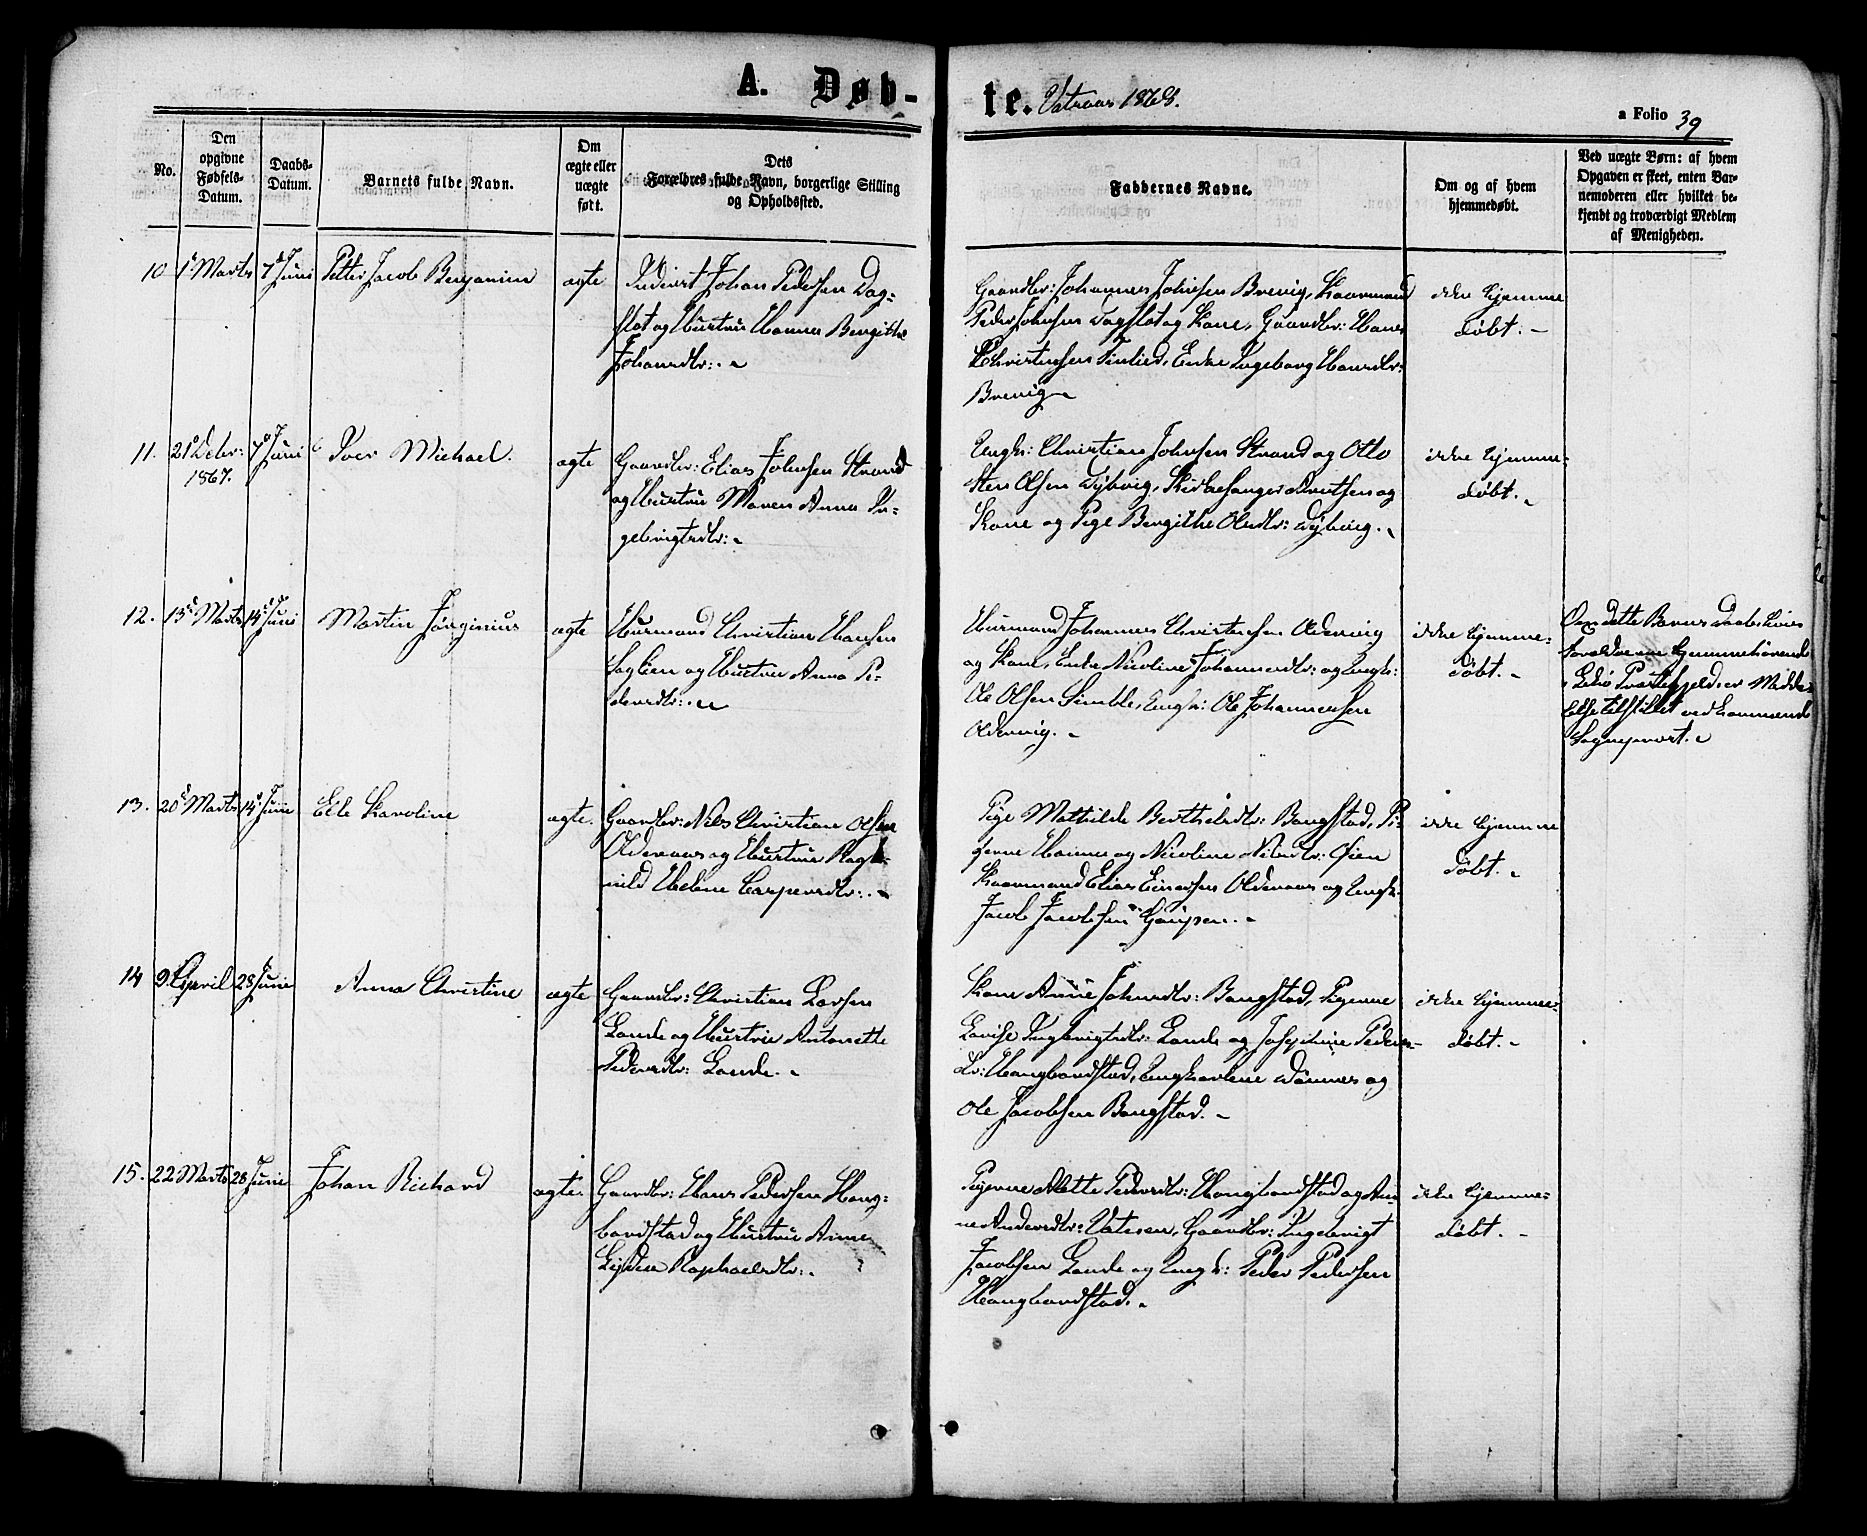 A. Døb-
te. Vatnaas 1868.
a Folio 39
No.
Den opgivne Fødsels-Datum.
Daabs-Datum.
Barnets fulde Navn.
Om ægte eller uægte født.
Dets Forældres fulde Navn, borgerlige Stilling og Opholdssted.
Faddernes Navne.
Om og af hvem hjemmedøbt.
Ved uægte Børn: af hvem Opgaven er skeet, enten Barnemoderen eller hvilket bekjendt og troværdigt Medlem af Menigheden.
10 1 Marts 7 Juni Petter Jacob Benjamin ægte
Inderst Johan Pedersen Dag-
slot og Hustru Hanna Bergitha
Johansdtr: .
Gaardbr: Johannes Johnsen Brevig, Kaarmand
Peder Johnsen Dagslot og Kone, Gaardbr: Hans
Christensen Enke Ingeborg Hansdtr:
Brevig
ikke hjemme
døbt. –
11. 21 Decbr: 1867. 7 Juni Iver Michael. ægte
Gaardbr: Elias Johnsen Strand
og Hustru Maren Anna In-
gebrigtsdtr:
Ungk: Christian Johnsen Strand og Otto
Sten Olsen Dybvig, Kirkesanger Knutsen og
Kone og Pige Bergithe Olsdtr: Dybvig.
ikke hjemme-
døbt.
12. 13 Marts 14 Juni Martin Jørginius ægte
Huusmand Christian Hansen
og Hustru Anna Pe-
dersdtr: .
Huusmand Johannes Christensen Oldervig
og Kone, Enke Nicoline Johannesdtr: og Ungk:
Ole Olsen Simble, Ungk: Ole Johannessen
Oldervig. –
ikke hjemme-
døbt. –
Om dette Barns Daab
Forældrene hjemmehørende
i Edø Præstegjeld, er Medde-
lelse tilstillet vedkommende
Sognepræst.
13. 20 Marts 14 Juni Ele Karoline ægte.
Gaardbr: Nils Christian Olsen
Oldernæs og Hustru Ragn-
hild Helene Caspersdtr: .
Pige Mathilde Berthelsdtr: Bangstad, Pi-
gerne Hanna og Nicoline Nilsdtr: Øien
Kaarmand Elias Einersen Oldernæs og Ungk:
Jacob Jacobsen Gaupen. –
ikke hjemme
døbt. –
14 9 April 28 Juni Anna Christine ægte
Gaardbr: Christian Larsen
Lande og Hustru Antonette
Pedersdtr: Lande. –
Kone Anne Johnsdtr: Bangstad, Pigerne
Lovise Ingebrigtsdtr: Lande og Josephine Peders-
dtr: Haugbardstad, Ungkarlene og
Ole Jacobsen Bangstad. –
ikke hjemme-
døbt. –
15. 22 Marts 28 Juni Johan Richard ægte.
Gaardbr: Hans Pedersen Haug-
bardstad og Hustru Anne
Raphaelsdtr: .
Pigerne Mette Pedersdtr: Haugbardstad og An-
ne Andersdtr: Gaardbr: Ingebrigt
Jacobsen Lande og Ungk: Peder Pedersen
Haugbardstad. –
ikke hjemme-
døbt. –